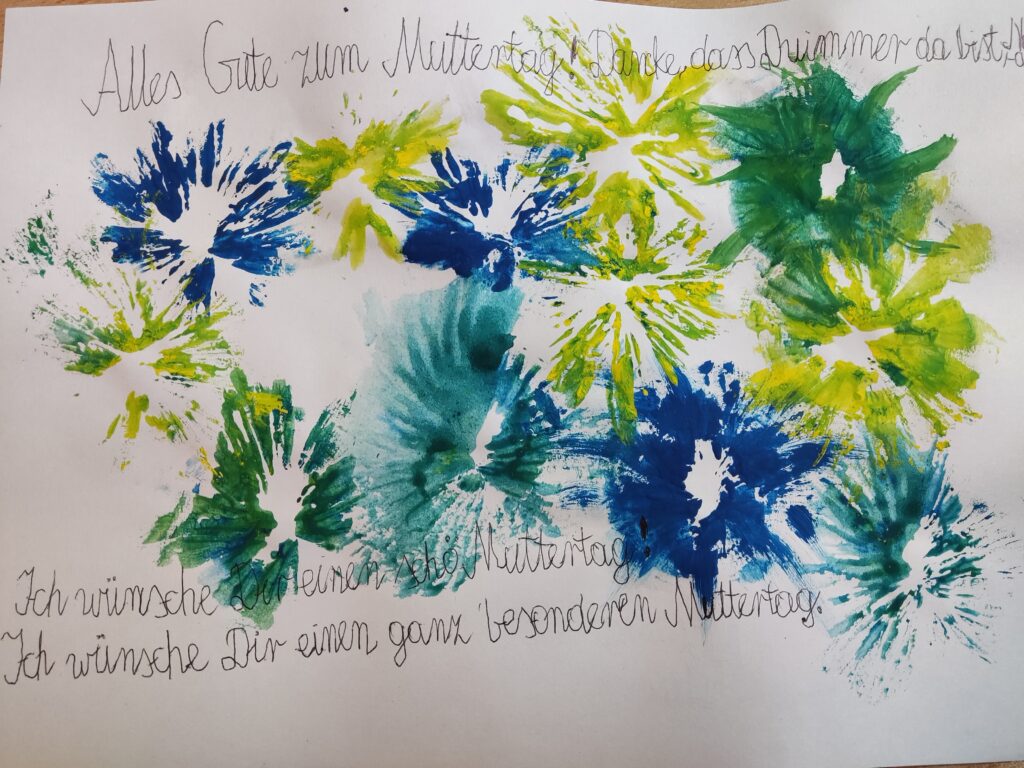 Alles Gute zum Muttertag! Danke, dass Du immer da bist,
Ich wünsche Dir einen schö Muttertag!
Ich wünsche Dir einen ganz besonderen Muttertag.